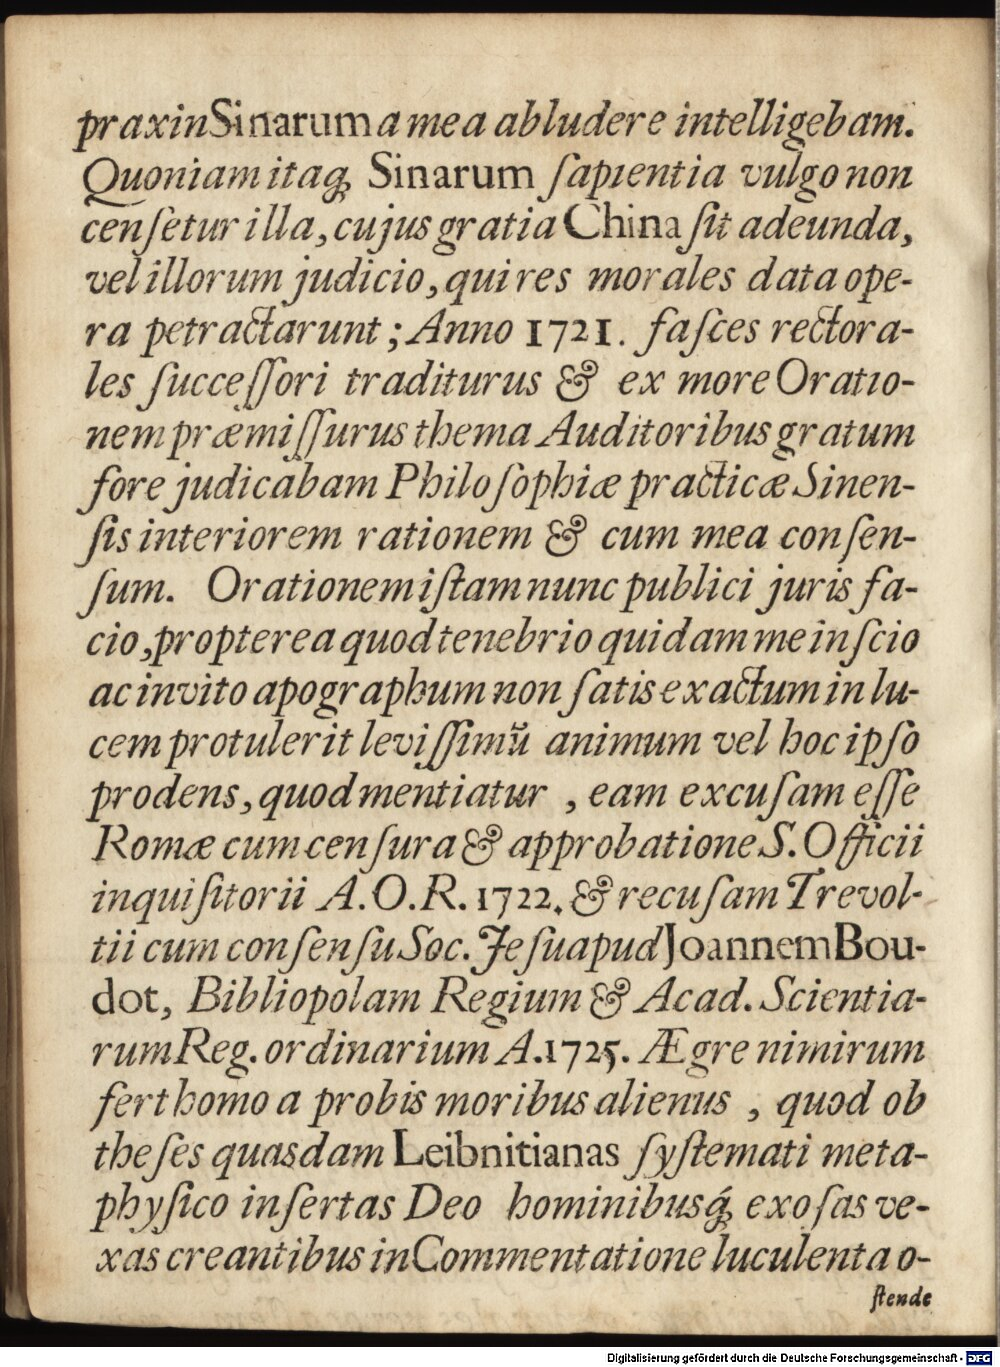 praxin Sinarum a mea abludere intelligebam.
Quoniam itaq; Sinarum ſapientia vulgo non
cenſetur illa, cujus gratia China ſit adeunda,
vel illorum judicio, qui res morales data ope-
ra petractarunt; Anno 1721. faſces rectora-
les ſucceſſori traditurus & ex more Oratio-
nem præmiſſurus thema Auditoribus gratum
fore judicabam Philoſophiæ practicæ Sinen-
ſis interiorem rationem & cum mea conſen-
ſum. Orationem iſtam nunc publici juris fa-
cio, propterea quod tenebrio quidam me inſcio
ac invito apographum non ſatis exactum in lu-
cem protulerit leviſſimū animum vel hoc ipſo
prodens, quod mentiatur, eam excuſam eſſe
Romæ cum cenſura & approbatione S. Officii
inquiſitorii A. O. R. 1722. & recuſam Trevol-
tii cum conſenſu Soc. Jeſu apud Joannem Bou-
dot, Bibliopolam Regium & Acad. Scientia-
rum Reg. ordinarium A. 1725. Ægre nimirum
fert homo a probis moribus alienus, quod ob
theſes quasdam Leibnitianas ſyſtemati meta-
phyſico inſertas Deo hominibusq́; exoſas ve-
xas creantibus in Commentatione luculenta o-
ſtende
Digitalisierung gefördert durch die Deutsche Forschungsgemeinschaft - DFG